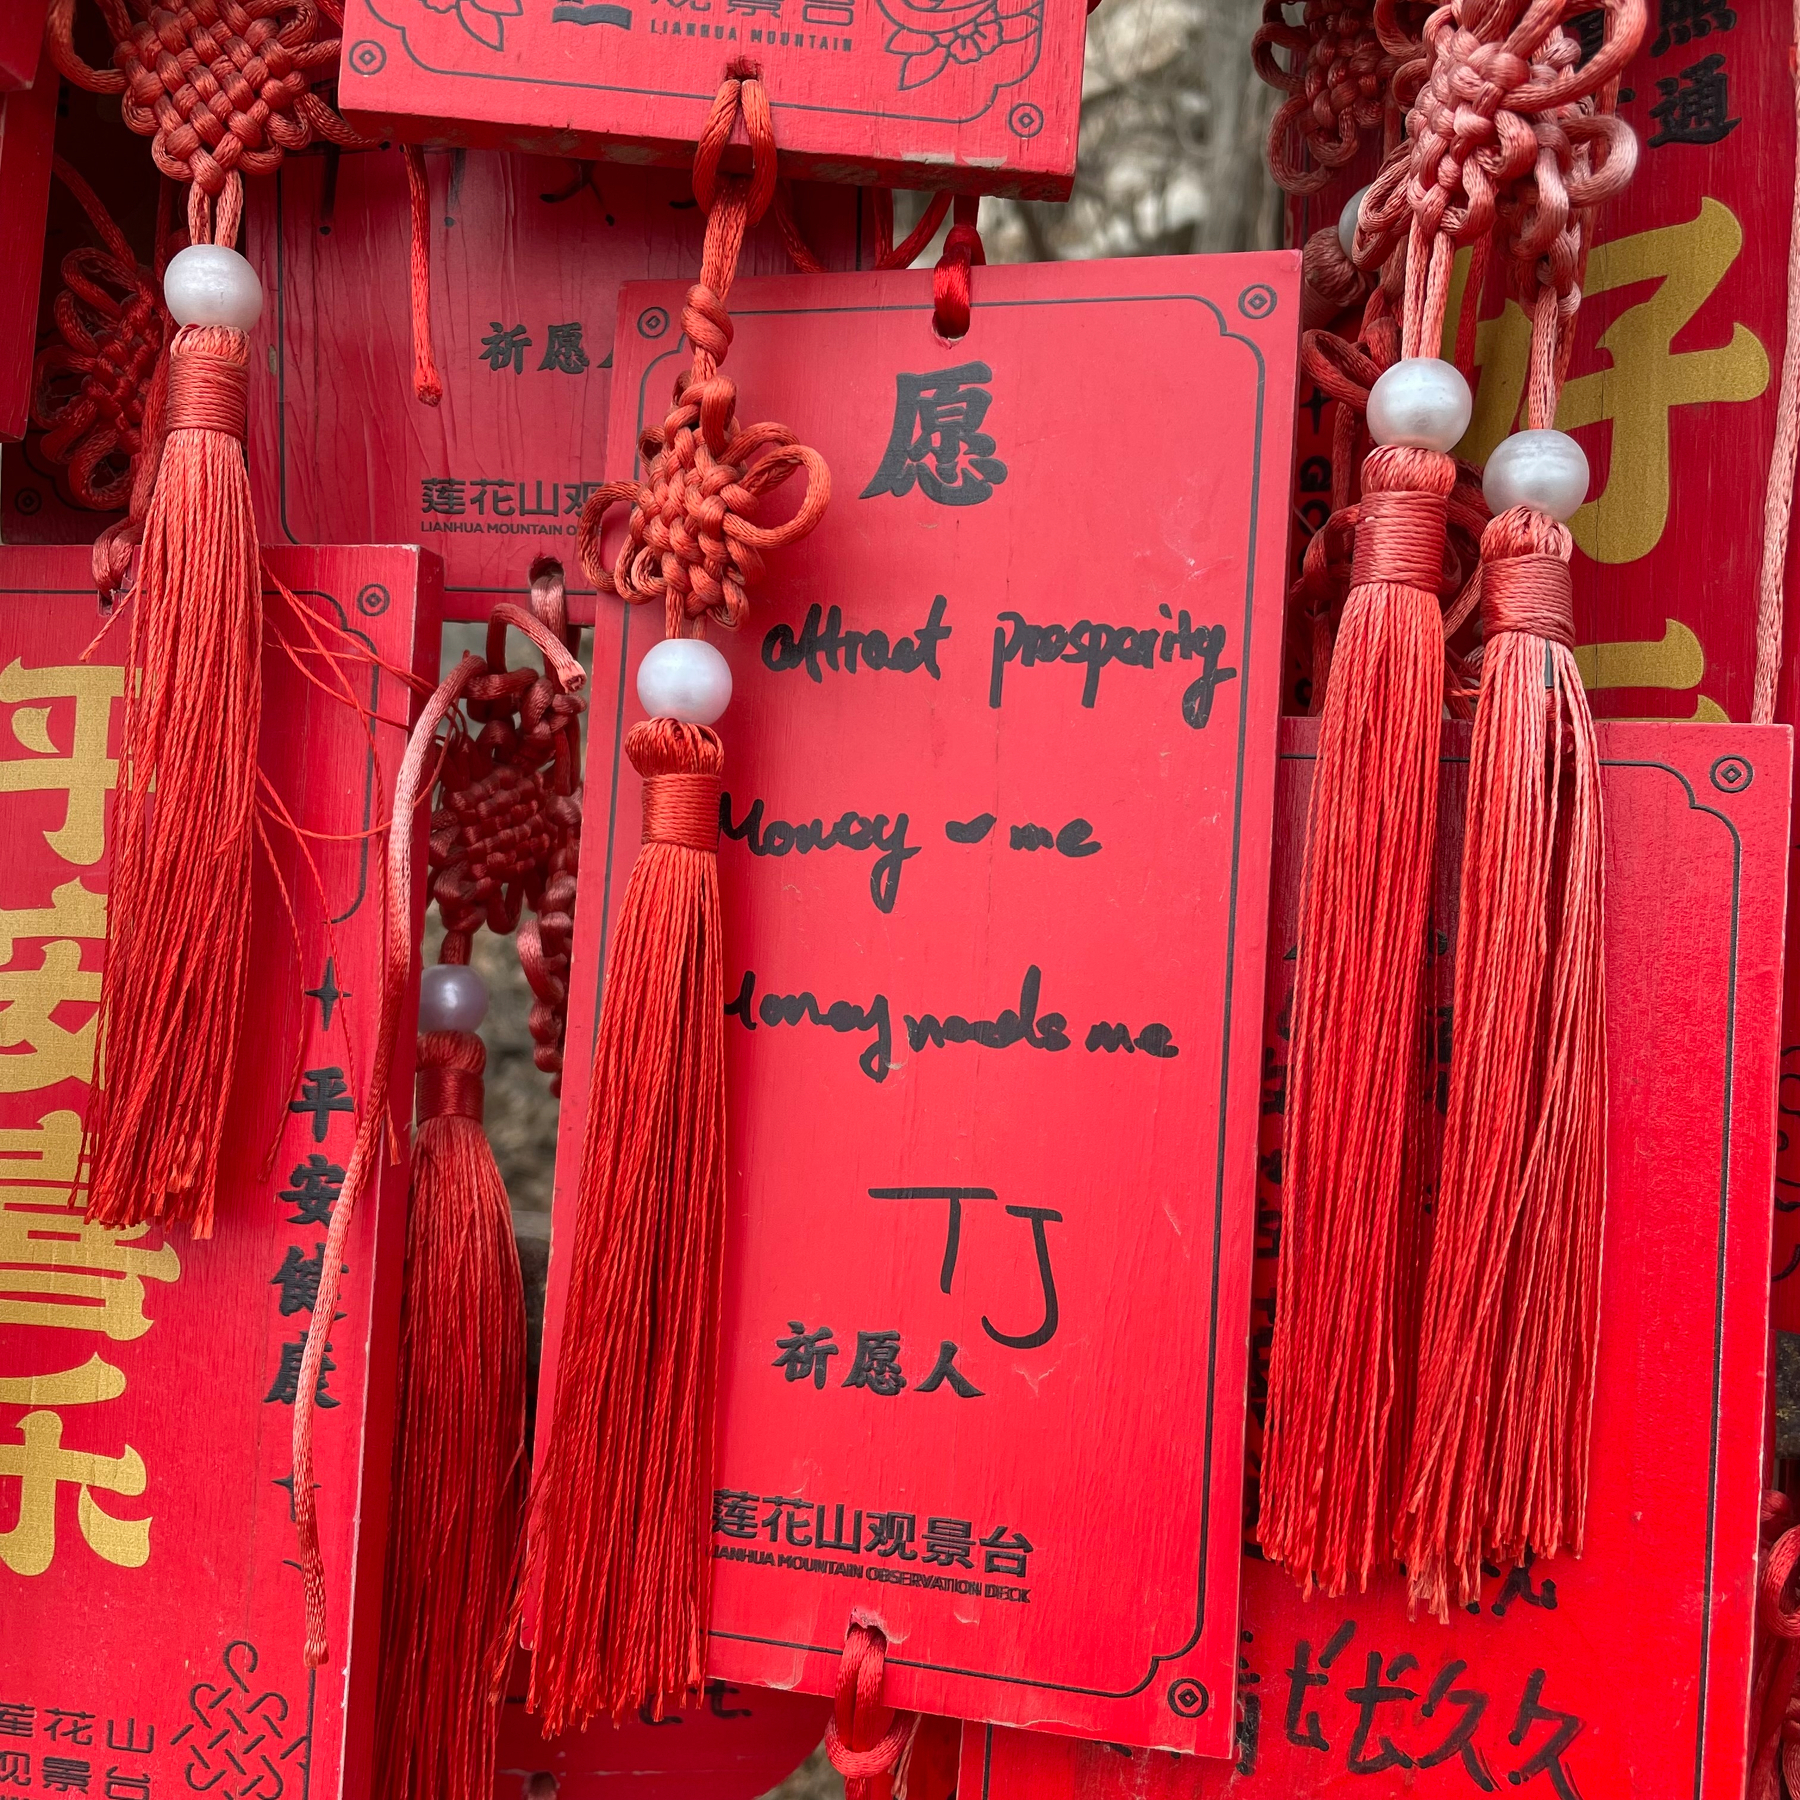 观景台
LIANHUA MOUNTAIN
通
好
祈愿
莲花山观
LIANHUA MOUNTAIN
愿
attract prosparity
Money ❤ me
Money needs me
TJ
祈愿人
莲花山观景台
LIANHUA MOUNTAIN OBSERVATION DECK
平安喜乐
平安健康
莲花山
观景台
长长久久